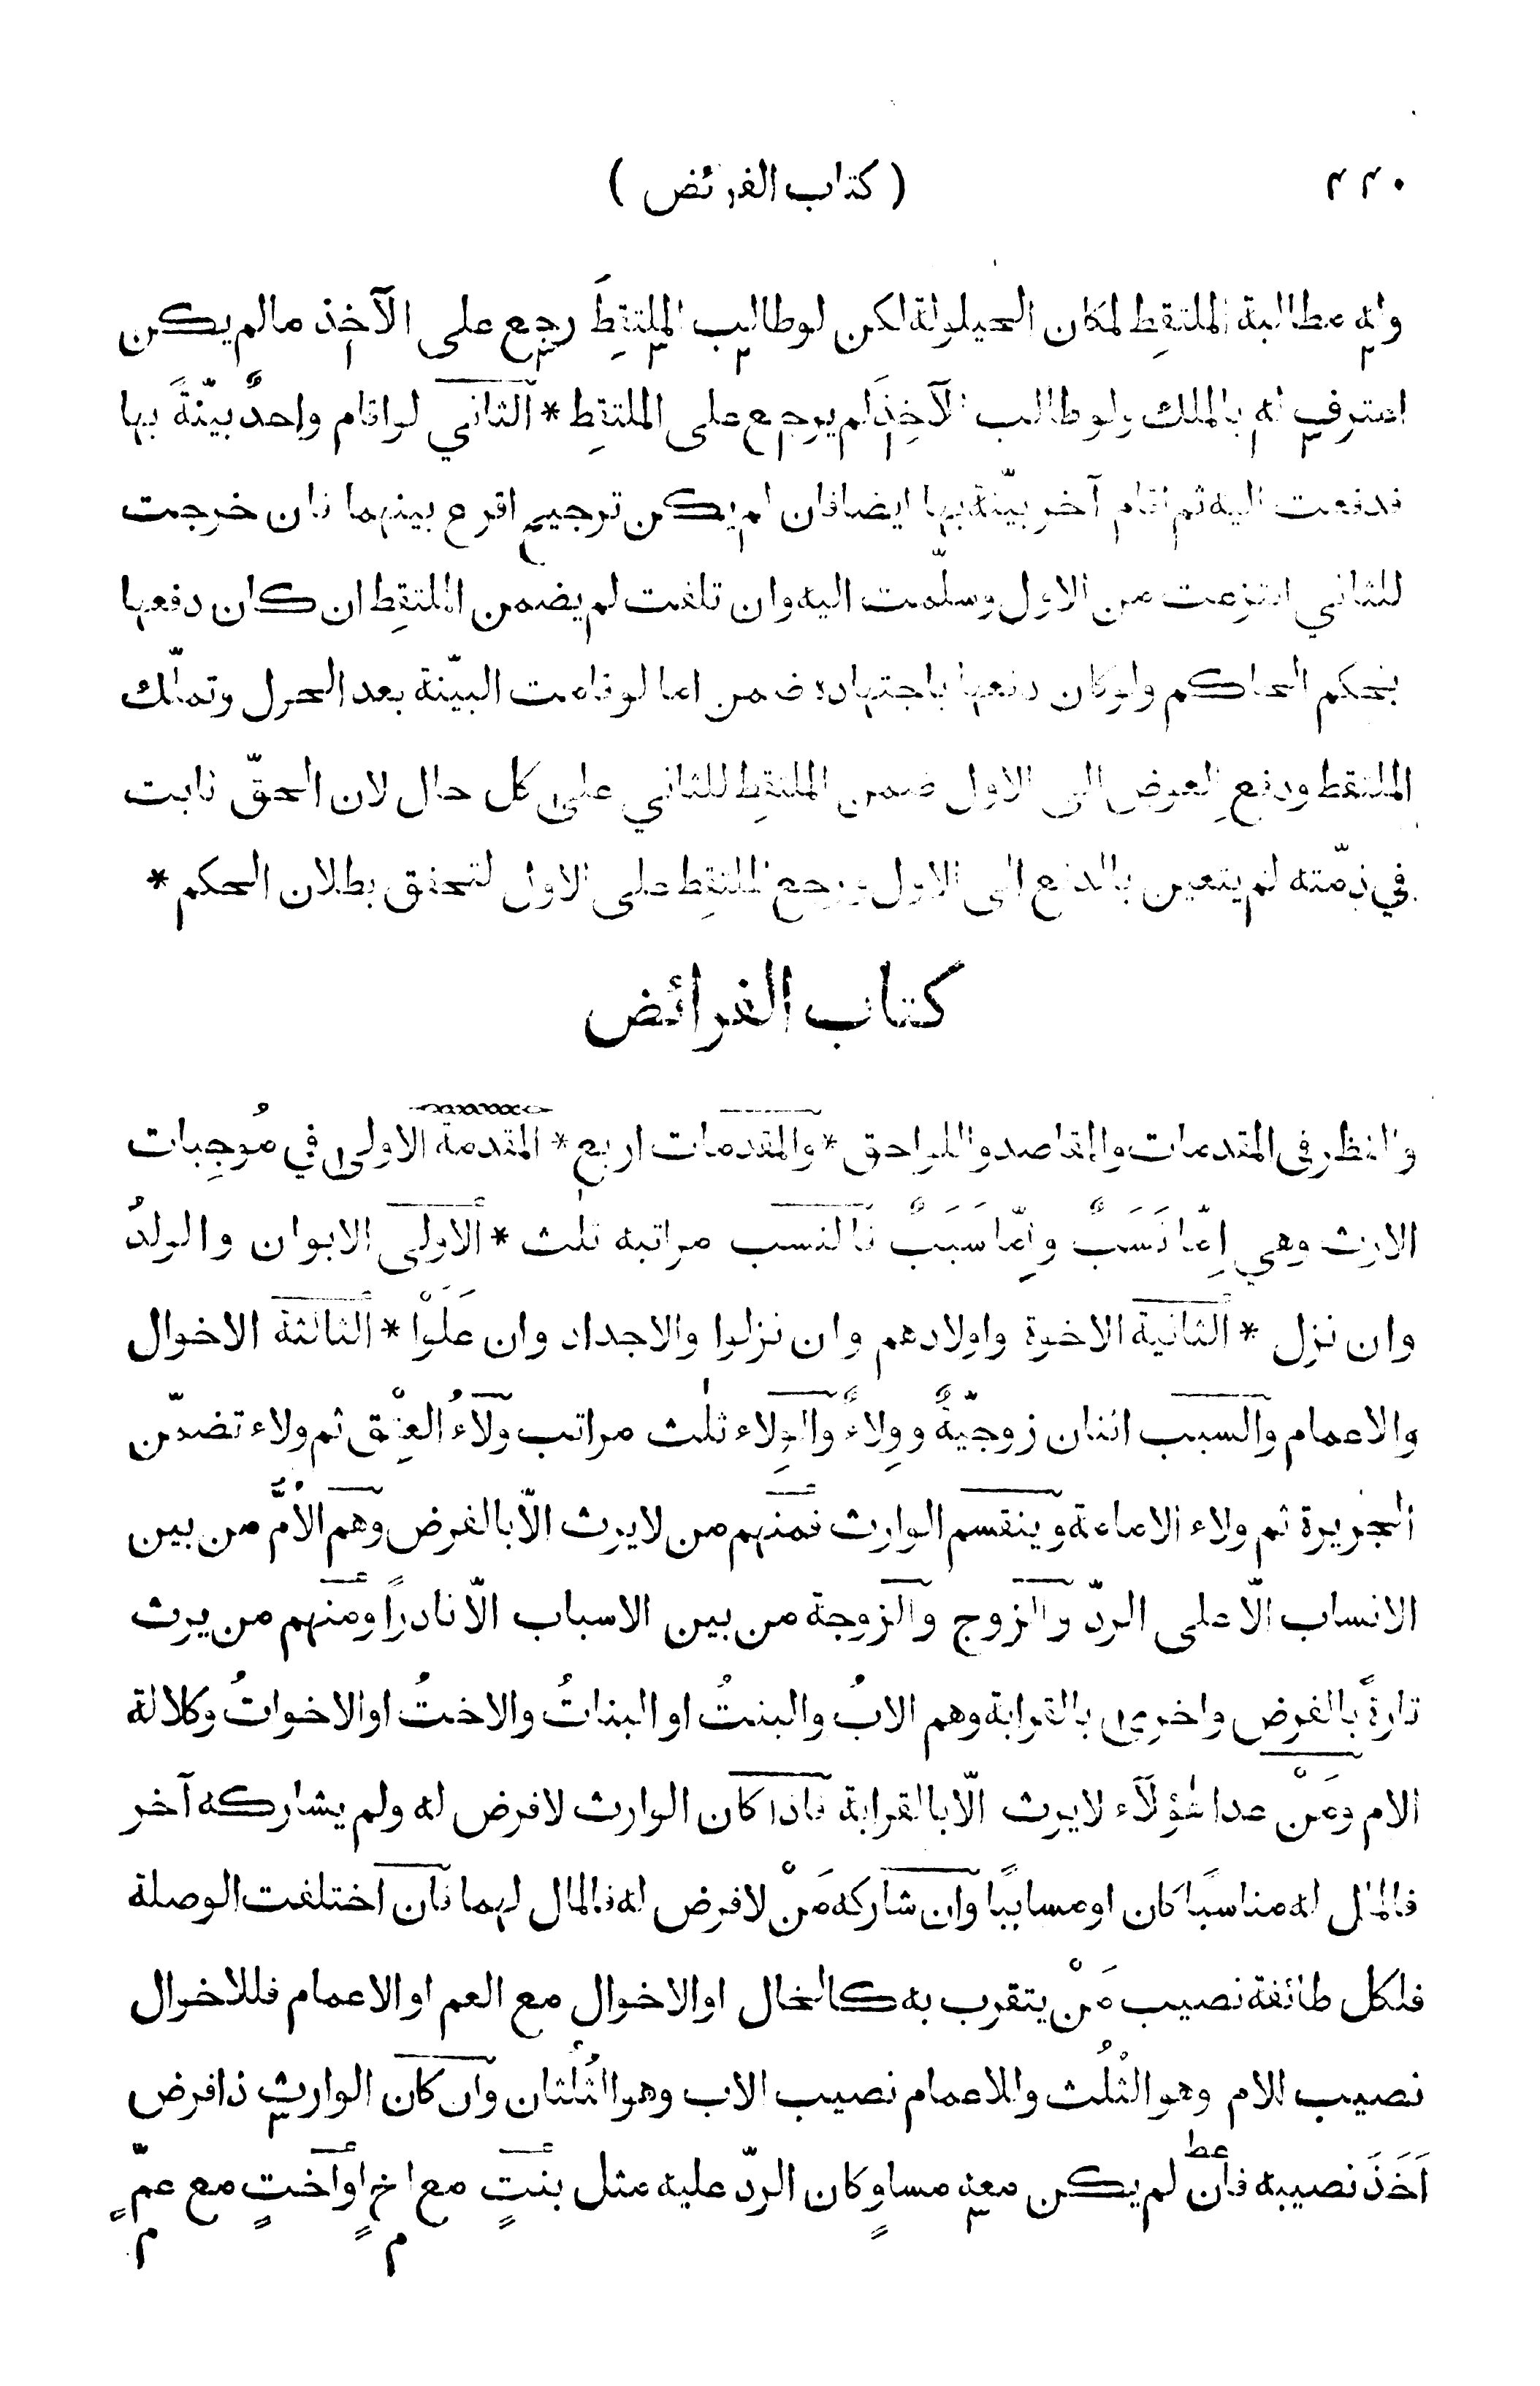 ٤٤٠ ( كتاب الفرائض )
وله مطالبة الملتقِط لمكان الحيلولة لكن لو طالب الملتقِطَ رجع على الآخِذ ما لم يكن
اعترف له بالملك ولو طالب الآخِذَ لم يرجع على الملتقِط * الثاني لو اقام واحدٌ بيّنةً بها
فدفعت اليه ثم اقام آخر بيّنة بها ايضا فان لم يكن ترجيح اقرع بينهما فان خرجت
للثاني انتزعت من الاول وسلّمت اليه وان تلفت لم يضمن الملتقِط ان كان دفعها
بحكم الحاكم ولو كان دفعها باجتهاده ضمن اما لو قامت البيّنة بعد الحول وتملّك
الملتقط ودفع العوض الى الاول ضمن الملتقِط للثاني على كل حال لان الحقّ ثابت
في ذمّته لم يتعين بالدفع الى الاول ورجع الملتقِط على الاول لتحقق بطلان الحكم *
كتاب الفرائض
والنظر في المقدمات والمقاصد واللواحق * والمقدمات اربع * المقدمة الاولى في مُوجِبات
الارث وهي اِمّا نَسَبٌ واِمّا سَبَبٌ فالنسب مراتبه ثلث * الاولى الابوان والولدُ
وان نزل * الثانية الاخوة واولادهم وان نزلوا والاجداد وان عَلَوْا * الثالثة الاخوال
والاعمام والسبب اثنان زوجيّةٌ ووِلاءٌ والوِلاء ثلٰث مراتب ولاءُ العِتْق ثم ولاء تضمّن
الجريرة ثم ولاء الامامة وينقسم الوارث فمنهم من لا يرث الّا بالفرض وهم الاُمُّ من بين
الانساب الّا على الردّ والزوج والزوجة من بين الاسباب الّا نادرًا ومنهم من يرث
تارةً بالفرض واخرى بالقرابة وهم الابُ والبنتُ او البناتُ والاختُ او الاخواتُ وكلالة
الام ومَنْ عدا هٰؤلآء لا يرث الّا بالقرابة فاذا كان الوارث لا فرض له ولم يشاركه آخر
فالمال له مناسبًا كان او مساببًا وان شاركه مَنْ لا فرض له فالمال لهما فان اختلفت الوصلة
فلكل طائفة نصيب مَنْ يتقرب به كالخال او الاخوال مع العم او الاعمام فللاخوال
نصيب الام وهو الثُلُث وللاعمام نصيب الاب وهو الثُلثان وان كان الوارث ذا فرض
اَخَذَ نصيبه فان لم يكن معه مساوٍ كان الردّ عليه مثل بنتٍ مع اخٍ او اختٍ مع عمٍّ